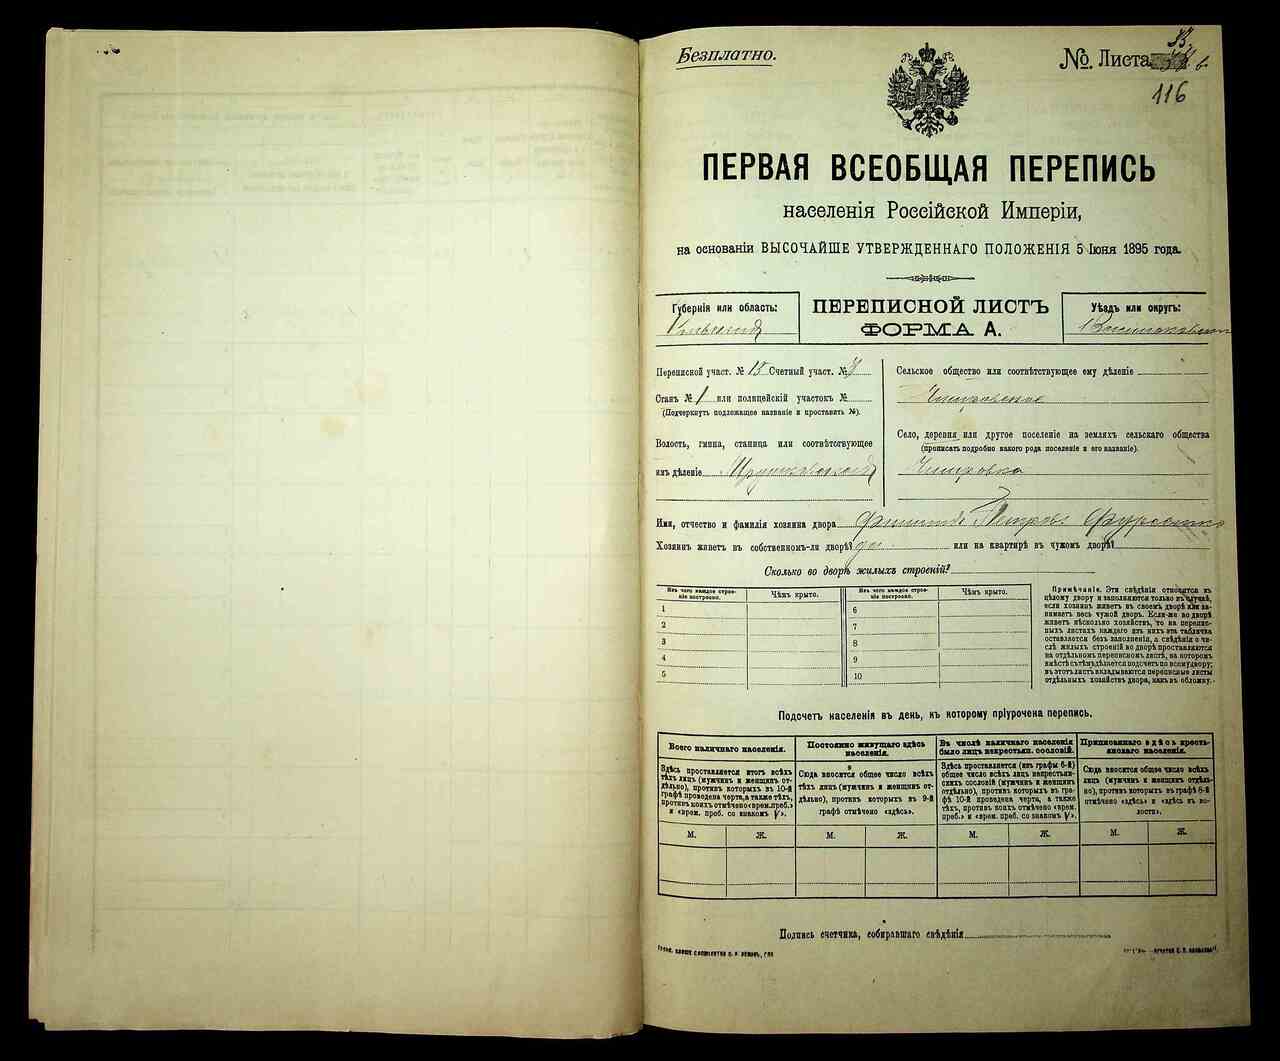 Безплатно.
№. Листа
116
ПЕРВАЯ ВСЕОБЩАЯ ПЕРЕПИСЬ
населенія Россійской Имперіи,
на основаніи ВЫСОЧАЙШЕ УТВЕРЖДЕННАГО ПОЛОЖЕНІЯ 5 Іюня 1895 года.
Губернія или область:
ПЕРЕПИСНОЙ ЛИСТЪ
ФОРМА А.
Уѣздъ или округъ:
Переписной участ. № 15 Счетный участ. №
Станъ № 1 или полицейскій участокъ №
(Подчеркнуть подлежащее названіе и проставить №).
Волость, гмина, станица или соотвѣтствующее
имъ дѣленіе
Сельское общество или соотвѣтствующее ему дѣленіе
Село, деревня или другое поселеніе на земляхъ сельскаго общества
(прописать подробно какого рода поселеніе и его названіе).
Имя, отчество и фамилія хозяина двора
Хозяинъ живетъ въ собственномъ-ли дворѣ? да. или на квартирѣ въ чужомъ дворѣ?
Сколько во дворѣ жилыхъ строеній?
Изъ чего каждое строеніе построено.
Чѣмъ крыто.
Изъ чего каждое строеніе построено.
Чѣмъ крыто.
1
2
3
4
5
6
7
8
9
10
Примѣчаніе. Эти свѣдѣнія относятся къ
цѣлому двору и заполняются только въ случаѣ,
если хозяинъ живетъ въ своемъ дворѣ или за-
нимаетъ весь чужой дворъ. Если-же во дворѣ
живетъ нѣсколько хозяйствъ, то на перепис-
ныхъ листахъ каждаго изъ нихъ эта табличка
оставляется безъ заполненія, а свѣдѣнія о чи-
слѣ жилыхъ строеній во дворѣ проставляются
на отдѣльномъ переписномъ листѣ, на которомъ
вмѣстѣ съ тѣмъ дѣлается подсчетъ по всему двору;
въ этотъ листъ вкладываются переписные листы
отдѣльныхъ хозяйствъ двора, какъ въ обложку.
Подсчетъ населенія въ день, къ которому пріурочена перепись.
Всего наличнаго населенія.
Здѣсь проставляется итогъ всѣхъ
тѣхъ лицъ (мужчинъ и женщинъ от-
дѣльно), противъ которыхъ въ 10-й
графѣ проведена черта, а также тѣхъ,
противъ коихъ отмѣчено «врем. преб.»
и «врем. преб. со знакомъ V».
Постоянно живущаго здѣсь
населенія.
Сюда вносится общее число всѣхъ
тѣхъ лицъ (мужчинъ и женщинъ от-
дѣльно), противъ которыхъ въ 9-й
графѣ отмѣчено «здѣсь».
Въ числѣ наличнаго населенія
было лицъ некрестьян. сословій.
Здѣсь проставляется (изъ графы 6-й)
общее число всѣхъ лицъ некрестьян-
скихъ сословій (мужчинъ и женщинъ
отдѣльно), противъ которыхъ въ гра-
фѣ 10-й проведена черта, а также
тѣхъ, противъ коихъ отмѣчено «врем.
преб.» и «врем. преб. со знакомъ V».
Приписаннаго здѣсь кресть-
янскаго населенія.
Сюда вносится общее число всѣхъ
лицъ (мужчинъ и женщинъ отдѣль-
но), противъ которыхъ въ графѣ 8-й
отмѣчено «здѣсь» и «здѣсь въ во-
лости».
М. Ж. М. Ж. М. Ж. М. Ж.
Подпись счетчика, собиравшаго свѣдѣнія